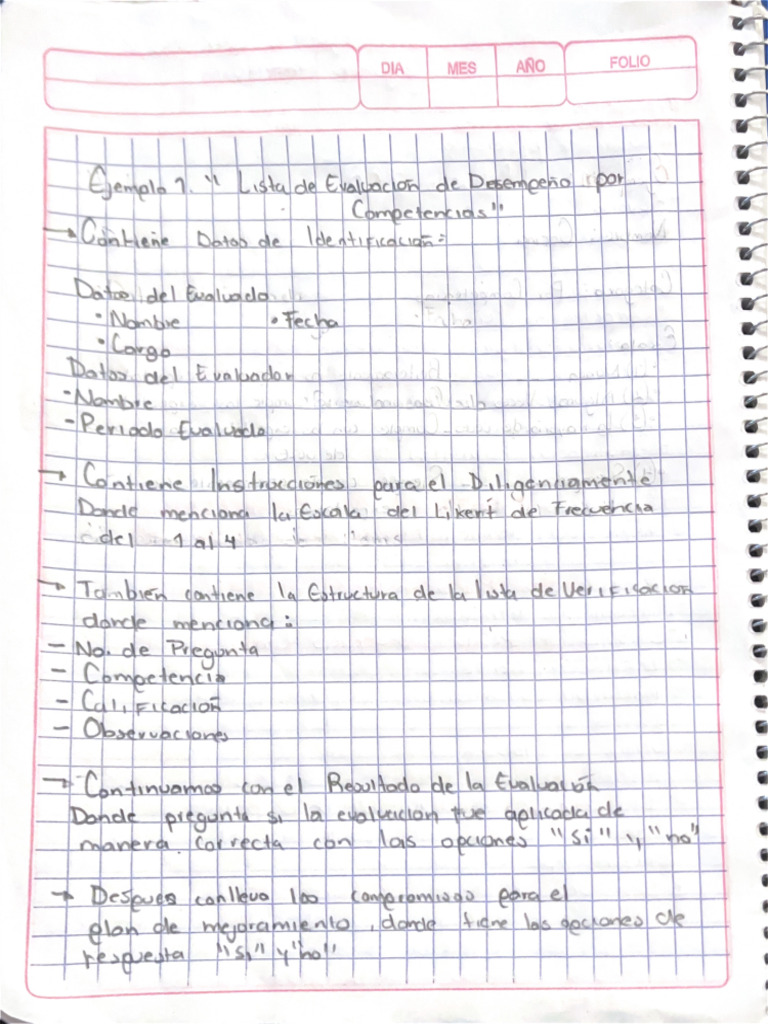 DIA MES AÑO FOLIO
Ejemplo 1. "Lista de Evaluación de Desempeño por
Competencias"
→ Contiene Datos de Identificación:
Datos del Evaluado
• Nombre • Fecha
• Cargo
Datos del Evaluador
- Nombre
- Periodo Evaluado
→ Contiene Instrucciones para el Diligenciamente
Donde menciona la Escala del Likert de Frecuencia
del 1 al 4
→ También contiene la Estructura de la lista de Verificación
donde menciona:
- No. de Pregunta
- Competencia
- Calificación
- Observaciones
→ Continuamos con el Resultado de la Evaluación
Donde pregunta si la evaluación fue aplicada de
manera correcta con las opciones "Si" y "no"
→ Despues conlleva los compromisos para el
plan de mejoramiento, donde tiene las opciones de
respuesta "Si" y "no"